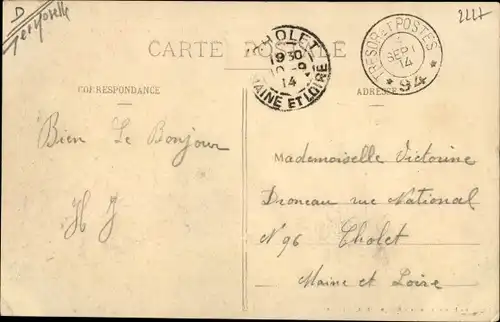 D
2227
CARTE POSTALE
CHOLET
9 30
14
MAINE ET LOIRE
TRESOR ET POSTES
SEPT
14
* 94 *
CORRESPONDANCE
ADRESSE
Bien Le Bonjour
H J
Mademoiselle Victorine
Droneau rue National
N° 96 Cholet
Maine et Loire